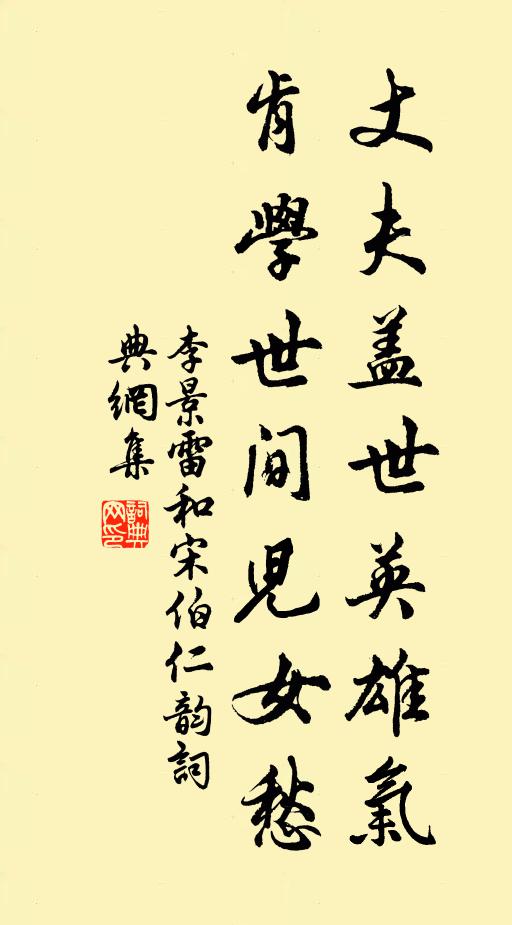 丈夫盖世英雄氣
肯學世间兒女愁
李景雷和宋伯仁韵詞
典網集
詞典
网印